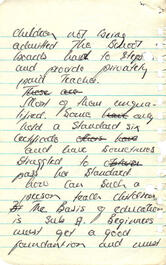 children not being
admitted the School
boards have to stop
and provide privately
paid teacher.
These are
Most of them unqua-
lified. Some have only
held a Standard Six
certificate others have
and have sometimes
struggled to
pass her Standard
how can such a
person teach children
If the Basis of education
is Sub A / Beginners
must get a good
foundation and must